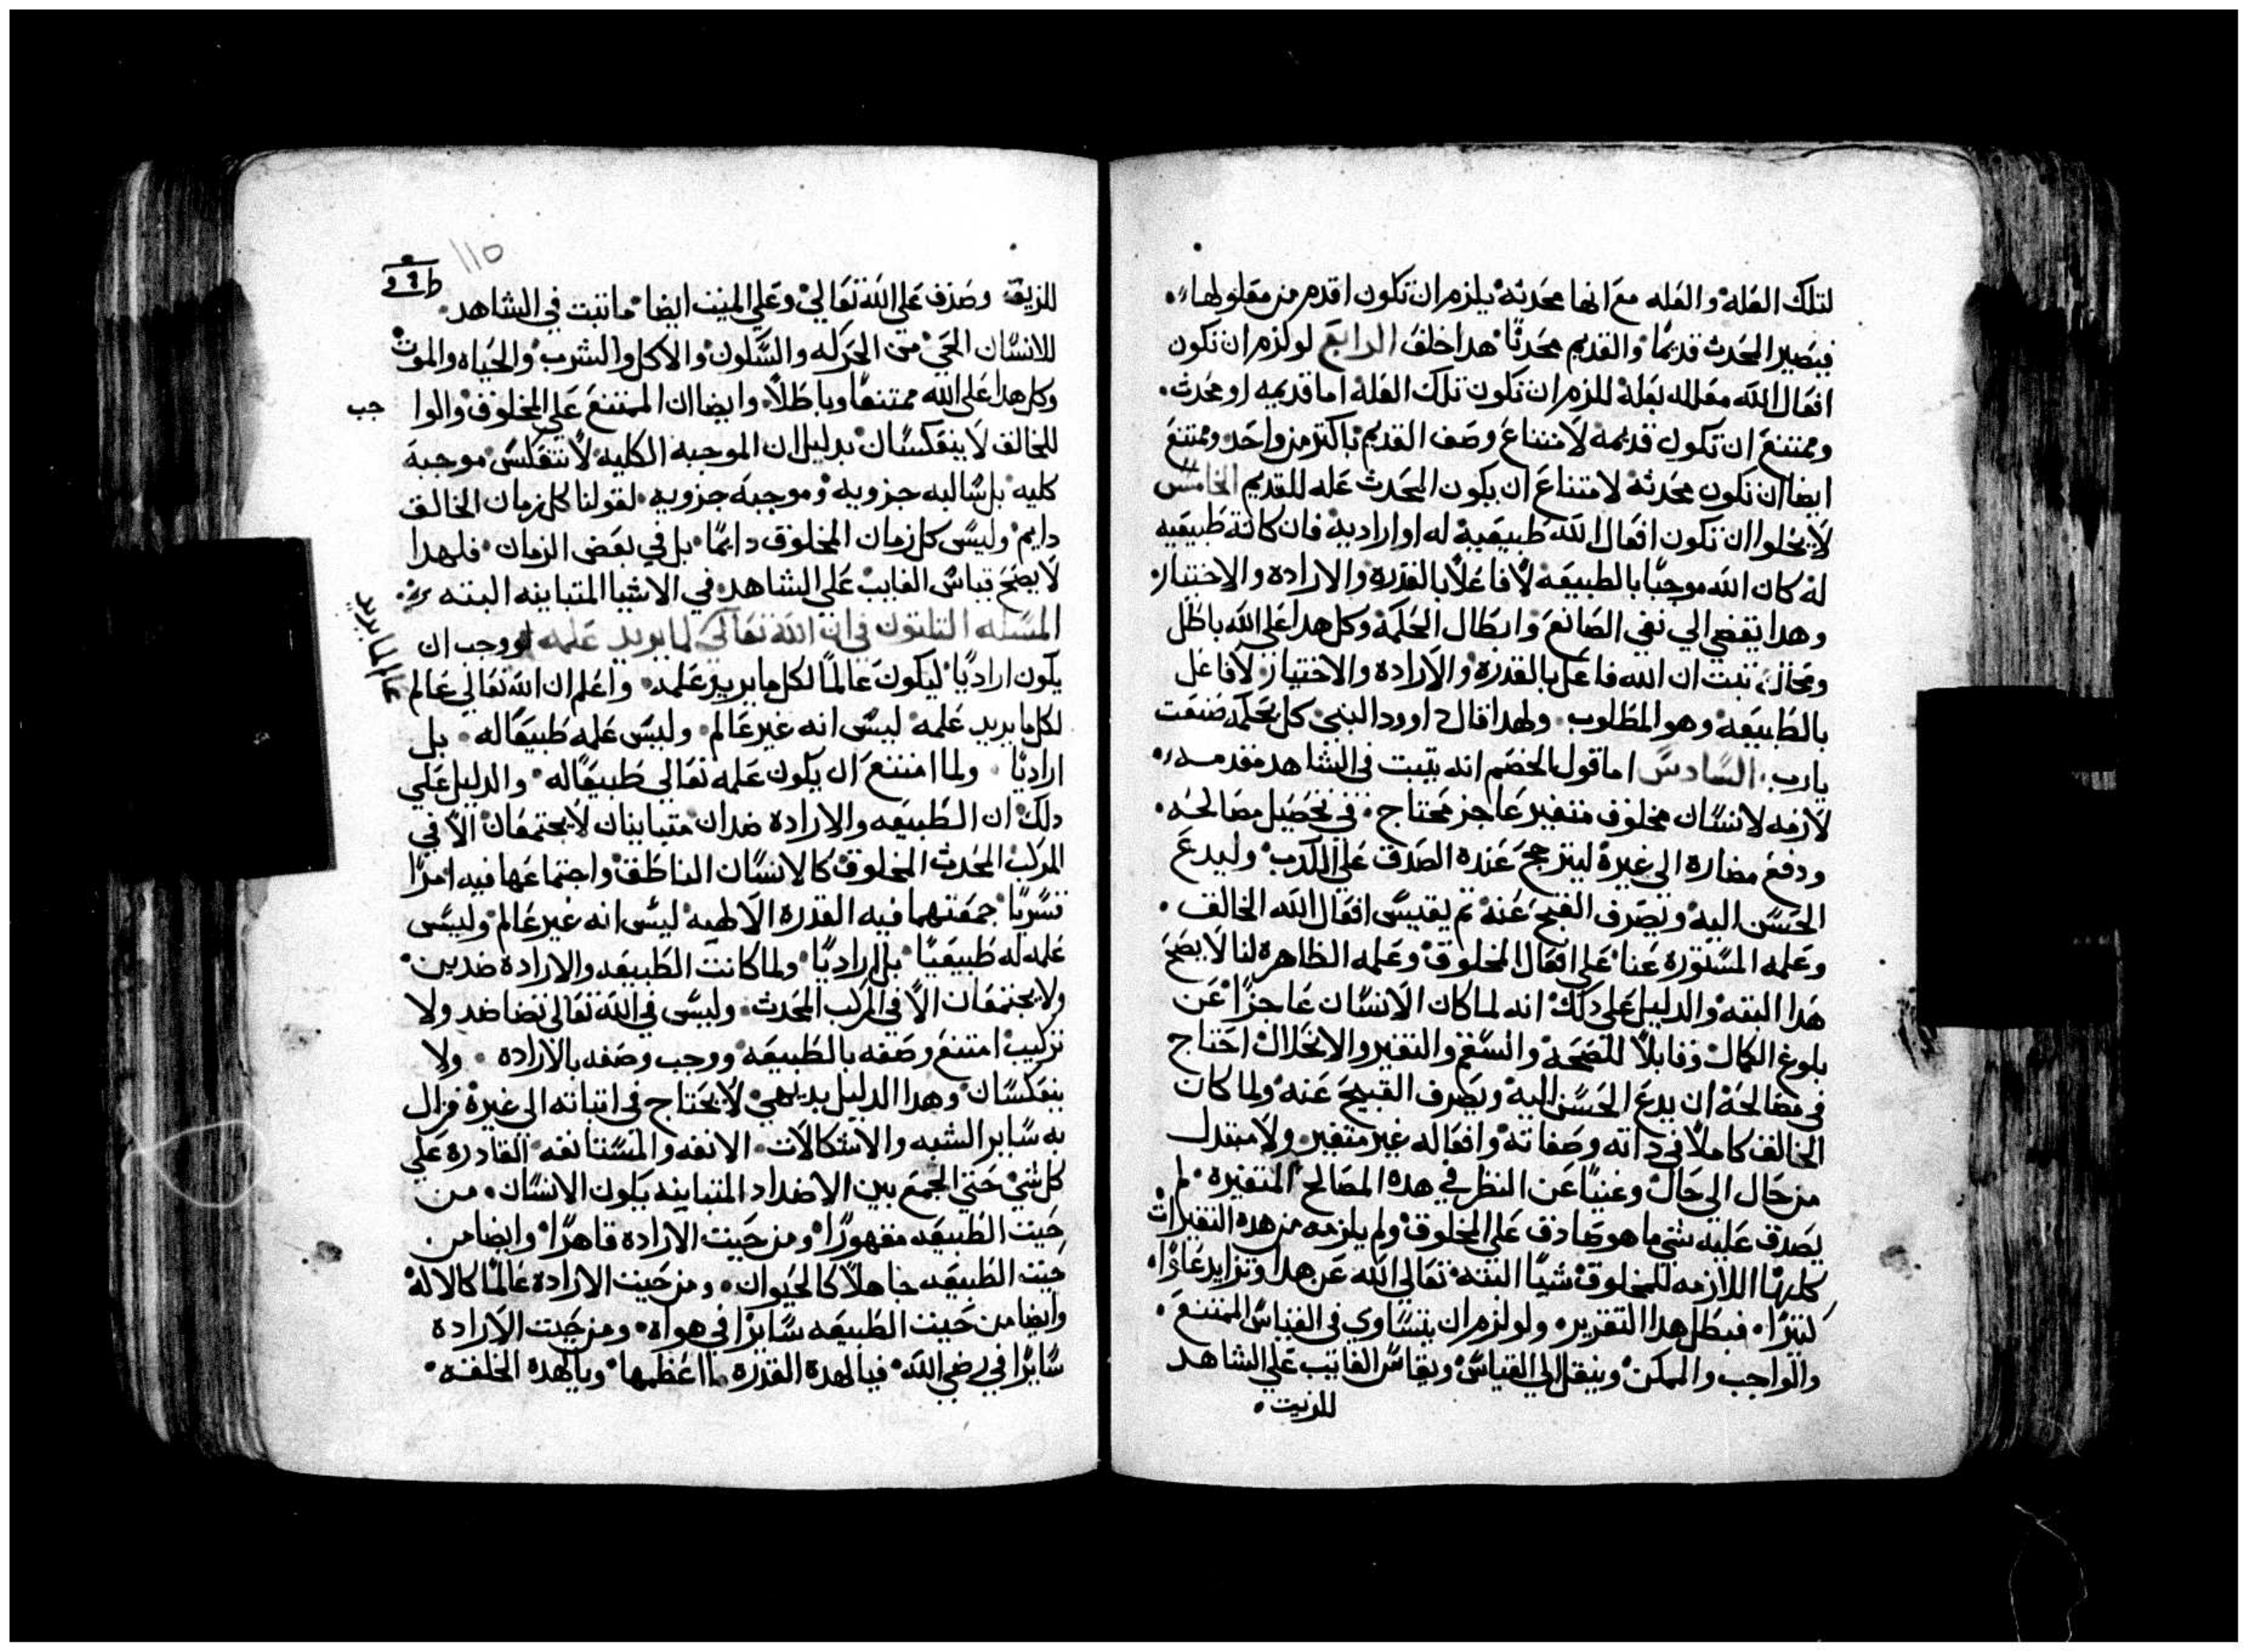 لتلك العله والعله مع انها محدثه يلزم ان تكون اقدم من معلولها
فيصير المحدث قديمًا والقديم محدثًا هدا خلف الرابع لو لزم ان تكون
افعال الله معلله بعلة للزم ان تكون تلك العلة اما قديمه او محدث.
وممتنع ان تكون قديمه لامتناع وصف القديم باكتر من واحد وممتنع
ايضا ان تكون محدثه لامتناع ان يكون المحدث عله للقديم الخامس
لا يخلوا ان تكون افعال الله طبيعية له او ارادية فان كانة طبيعيه
له كان الله موجبًا بالطبيعه لا فاعلاً بالقدره والاراده والاختيار.
وهدا يفضي الي نفي الصانع وابطال الحكمة وكل هدا علي الله باطل
ومحال. تبت ان الله فاعل بالقدرة والارادة والاختيار لا فاعل
بالطبيعه وهو المطلوب. ولهدا قال داوود النبي كل بحكمه صنعت
يارب. السادس اما قول الخصم انه يتبت في الشاهد مقدمه
لازمه لانسان مخلوف متغير عاجز محتاج. في تحصيل مصالحه.
ودفع مضارة الي غيرة ليترجح عندة الصدق علي الكدب وليدع
الحسن اليه ويصرف القبيح عنه تم يقيس افعال الله الخالف.
وعلمه المستورة عنا علي افعال المخلوق وعلمه الظاهرة لنا لا يصح
هدا البته والدليل علي دلك انه لما كان الانسان عاجزًا عن
بلوغ الكمال وقابلاً للصحة والسقم والتغير والانحلال احتاج
في مصالحة ان يدع الحسن اليه ويصرف القبيح عنه ولما كان
الخالف كاملاً في داته وصفاته وافعاله غير متغير ولا متبدل
من حال الي حال وغنيًا عن النظر في هده المصالح المتغيره لم
يصدق عليه شي ما هو صادق علي المخلوق ولم يلزمه من هده التغيرات
كلها اللازمه للمخلوق شيًا البته تعالي الله عن هدا وتزايد علوًا
كتيرًا. فبطل هدا التقرير. ولو لزم ان يتساوي في القياس الممتنع.
والواجب والممكن وينقل الي القياس ويقاس الغايب علي الشاهد
للزيت.
110
للزيق وصدف علي الله تعالي وعلي الميت ايضا ما تبت في الشاهد.
للانسان الحي من الحركه والسكون والاكل والشرب والحياه والموت
وكل هدا علي الله ممتنعًا وباطلاً وايضا ان الممتنع علي المخلوف والوا
جب
للخالف لا ينعكسان بدليل ان الموجبه الكليه لا تنعكس موجبة
كليه بل سالبه جزويه وموجبه جزويه. لقولنا كل زمان الخالف
دايم وليس كل زمان المخلوق دايمًا بل في بعض الزمان فلهدا
لا يصح قياس الغايب علي الشاهد في الاشيا المتباينه البته
المسله التلتون في ان الله تعالي لما يريد علمه لووجب ان
عالم لما يريد
يكون اراديًا ليكون عالمًا لكل ما يريد علمه. واعلم ان الله تعالي عالم
لكل ما يريد علمه ليس انه غير عالم. وليس علمه طبيعًا له بل
اراديًا. ولما امتنع ان يكون علمه تعالي طبيعًا له والدليل علي
دلك ان الطبيعه والاراده ضدان متباينان لا يجتمعان الا في
المركب المحدث المخلوق كالانسان الناطق واجتماعها فيه امرًا
قسريًا جمعتهما فيه القدره الالاهيه ليس انه غير عالم وليس
علمه له طبيعيًا بل اراديًا ولما كانت الطبيعه والاراده ضدين
ولا يجتمعان الا في المركب المحدث. وليس في الله تعالي تضاضد ولا
تركيب امتنع وصفه بالطبيعه ووجب وصفه بالاراده. ولا
ينعكسان وهدا الدليل بديهي لا يحتاج في اتباته الي غيرة فزال
به ساير الشبه والاشكالات. الانفه والمستانفه القادره علي
كل شي حتي الجمع بين الاضداد المتباينه يكون الانسان. من
حيت الطبيعه مقهورًا ومن حيت الاراده قاهرًا وايضا من.
حيت الطبيعه جاهلاً كالحيوان. ومن حيت الارادة عالمًا كالالاة
وايضا من حيت الطبيعه سايرًا في هواه ومن حيت الارادة
سايرًا في رضي الله فيا لهدة القدرة ما اعظمها ويا لهدة الخلقه.